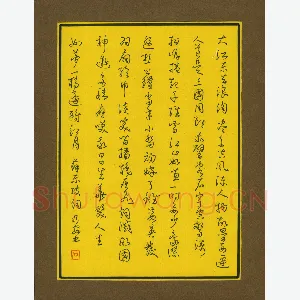 大江东去浪淘尽千古风流人物故垒西边
人道是三国周郎赤壁乱石穿空惊涛
拍岸卷起千堆雪江山如画一时多少豪杰
遥想公瑾当年小乔初嫁了雄姿英发
羽扇纶巾谈笑间樯橹灰飞烟灭故国
神游多情应笑我早生华发人生
如梦一樽还酹江月 苏东坡词
Shufawang.CN